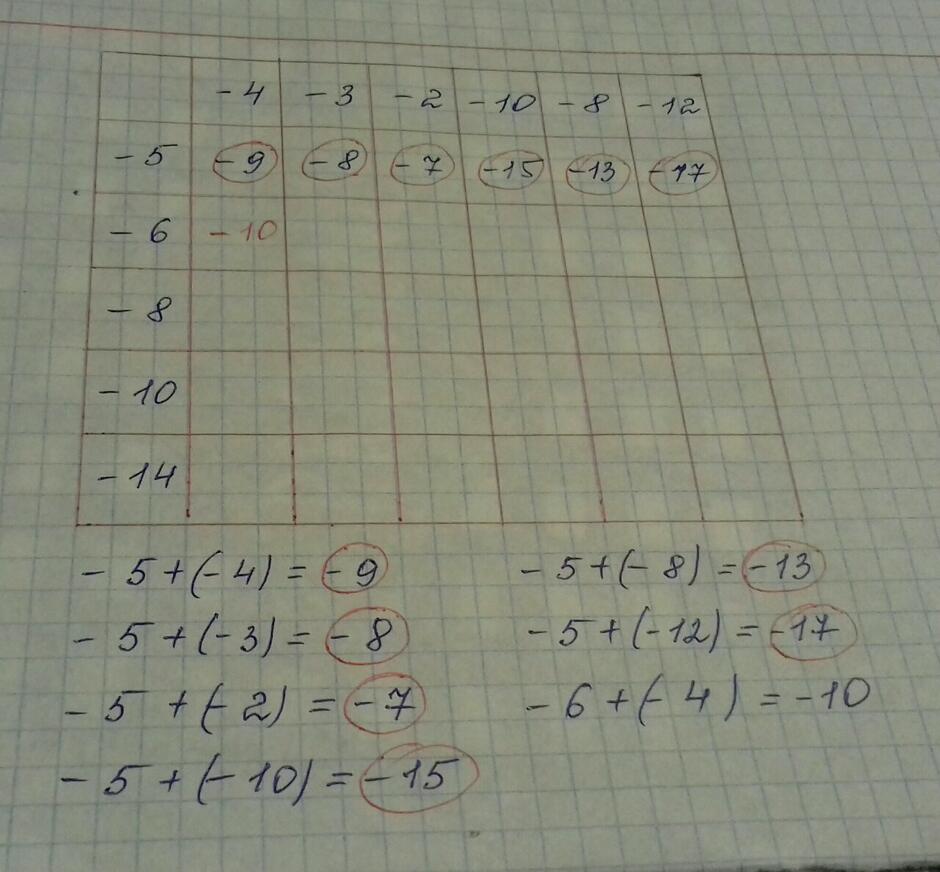 -4 -3 -2 -10 -8 -12
-5 -9 -8 -7 -15 -13 -17
-6 -10
-8
-10
-14
-5+(-4)=-9
-5+(-3)=-8
-5+(-2)=-7
-5+(-10)=-15
-5+(-8)=-13
-5+(-12)=-17
-6+(-4)=-10